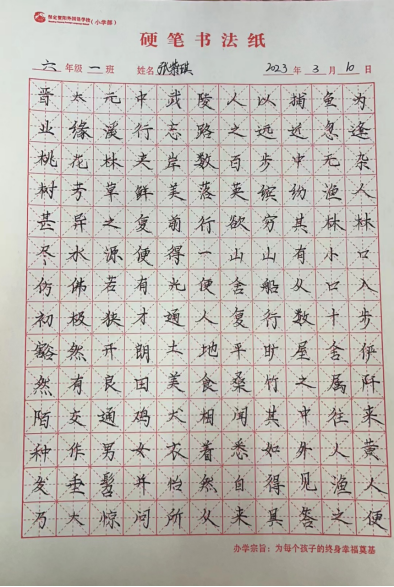 (小学部)
硬笔书法纸
六 年级 一 班 姓名 张 琪 2023 年 3 月 10 日
晋太元中武陵人以捕鱼为
业缘溪行忘路之远近忽逢
桃花林夹岸数百步中无杂
树芳草鲜美落英缤纷渔人
甚异之复前行欲穷其林林
尽水源便得一山山有小口
仿佛若有光便舍船从口入
初极狭才通人复行数十步
豁然开朗土地平旷屋舍俨
然有良田美食桑竹之属阡
陌交通鸡犬相闻其中往来
种作男女衣着悉如外人黄
发垂髫并怡然自得见渔人
乃大惊问所从来具答之便
办学宗旨：为每个孩子的终身幸福奠基